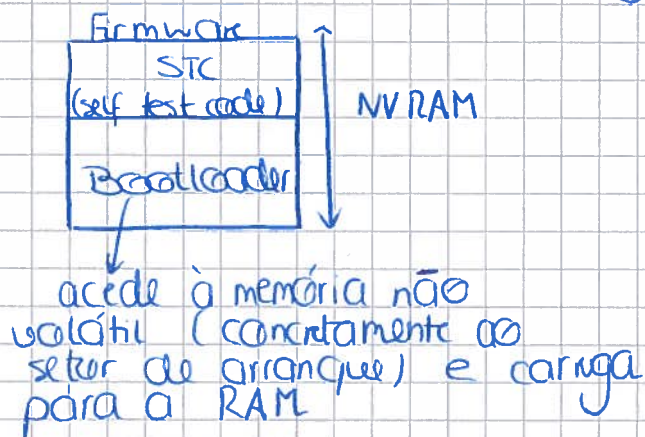 Firmware
STC
(self test code)
NVRAM
Bootloader
acede à memória não
volátil (concretamente ao
setor de arranque) e carrega
para a RAM